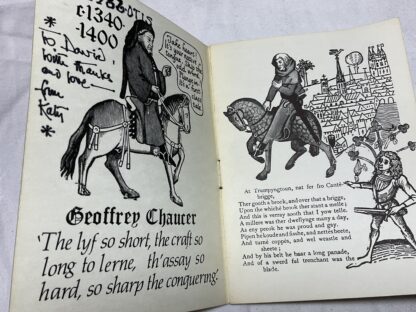 c1340-
-1400
*
To David
with thanks
and love
from
Katy
*
Geoffrey Chaucer
'The lyf so short, the craft so
long to lerne, th'assay so
hard, so sharp the conquering'.
At Trumpyngtoun, nat fer fro Cante-
brigge,
Ther gooth a brook, and over that a brigge,
Upon the whiche brook ther stant a melle;
And this is verray sooth that I yow telle.
A millere was ther dwellynge many a day,
As eny pecok he was proud and gay.
Pipen he koude and fisshe, and nettes beete,
And turne coppes, and wel wrastle and
sheete;
And by his belt he baar a long panade,
And of a swerd ful trenchant was the
blade.